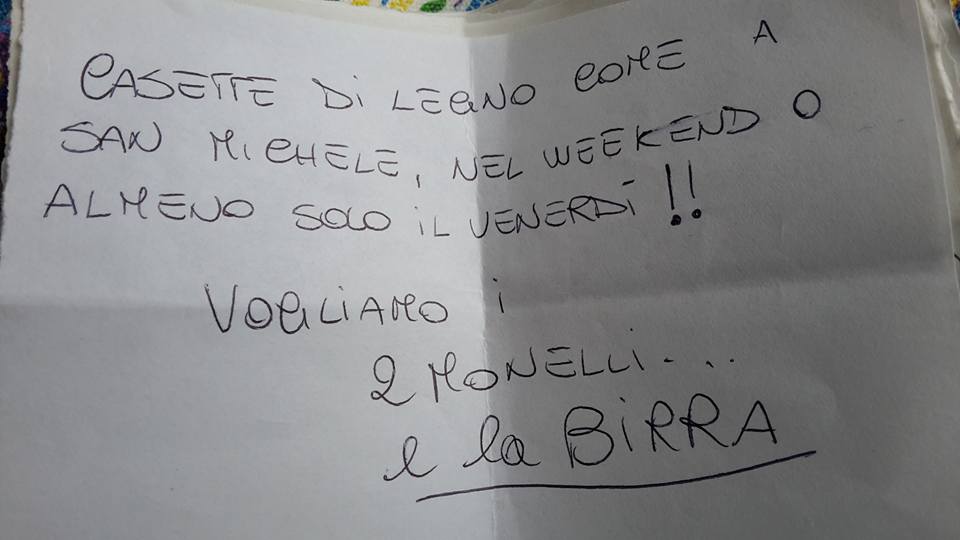 CASETTE Di LEGNO COME A
SAN MiCHELE, NEL WEEKEND O
ALMENO SOLO iL VENERDÌ!!
VOGLiAMO i
2 MONELLi...
e la BiRRA